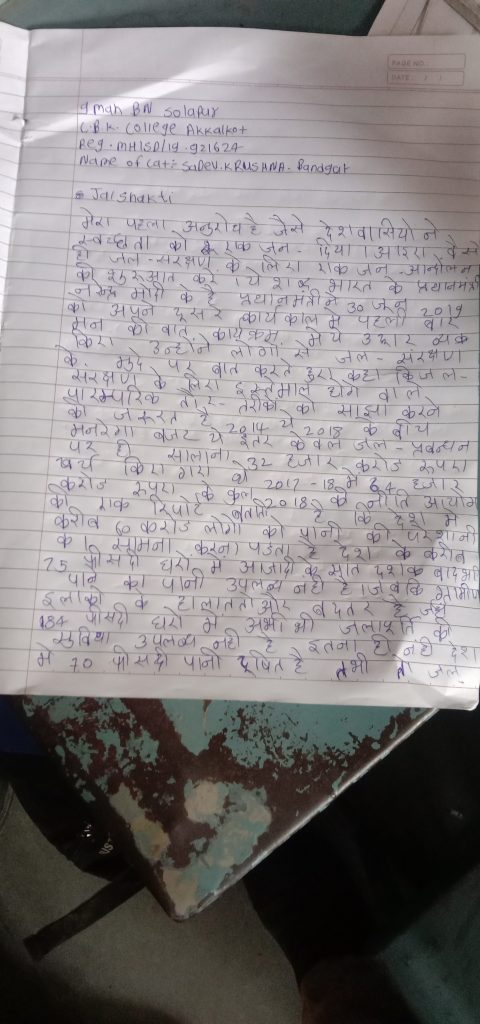 PAGE NO.:
DATE: / /
9 mah BN Solapur
C.B.K. College Akkalkot
Reg. MH19SD/19.921624
Name of cat: SaDev. KRUSHNA. Bandgar
Jalshakti
मेरा पहला अनुरोध है जैसे देशवासियो ने
स्वच्छता को एक जन - दिया आइए वैसे
ही जल - सरक्षण के लिए एक जन - आन्दोलन
की शुरुआत करे। ये शब्द भारत के प्रधानमंत्री
नरेन्द्र मोदी के है प्रधानमंत्रीने 30 जून 2019
को अपने दूसरे कार्यकाल मे पहली बार
मन की बात कार्यक्रम मे ये उद्गार व्यक्त
किए उन्होने लोगो से जल - संरक्षण
के मुद्दे पर बात करते हुए कहा कि जल -
सरक्षण के लिए इस्तेमाल होने वाले
पारम्परिक तौर - तरीको को साझा करने
की जरूरत है 2014 से 2018 के बीच
मनरेगा बजट से इतर केवल जल - प्रबन्धन
पर ही सालाना 32 हजार करोड रुपए
खर्च किए गए 2017 - 18 मे 64 हजार
करोड रुपए के कुल 2018 की नीति आयोग
की एक रिपोर्ट बताती है कि देश मे
करीब 60 करोड लोगो को पानी की परेशानी
का सामना करना पडता है देश के करीब
75 फीसदी घरो मे आजादी के सात दशक बाद भी
पीने का पानी उपलब्ध नही है। जबकि ग्रामीण
इलाको के हालात तो और बदतर है जहाँ
84 फीसदी घरो मे अभी भी जलापूर्ति की
सुविधा उपलब्ध नही है इतना ही नही देश
मे 70 फीसदी पानी दूषित है तभी तो जल